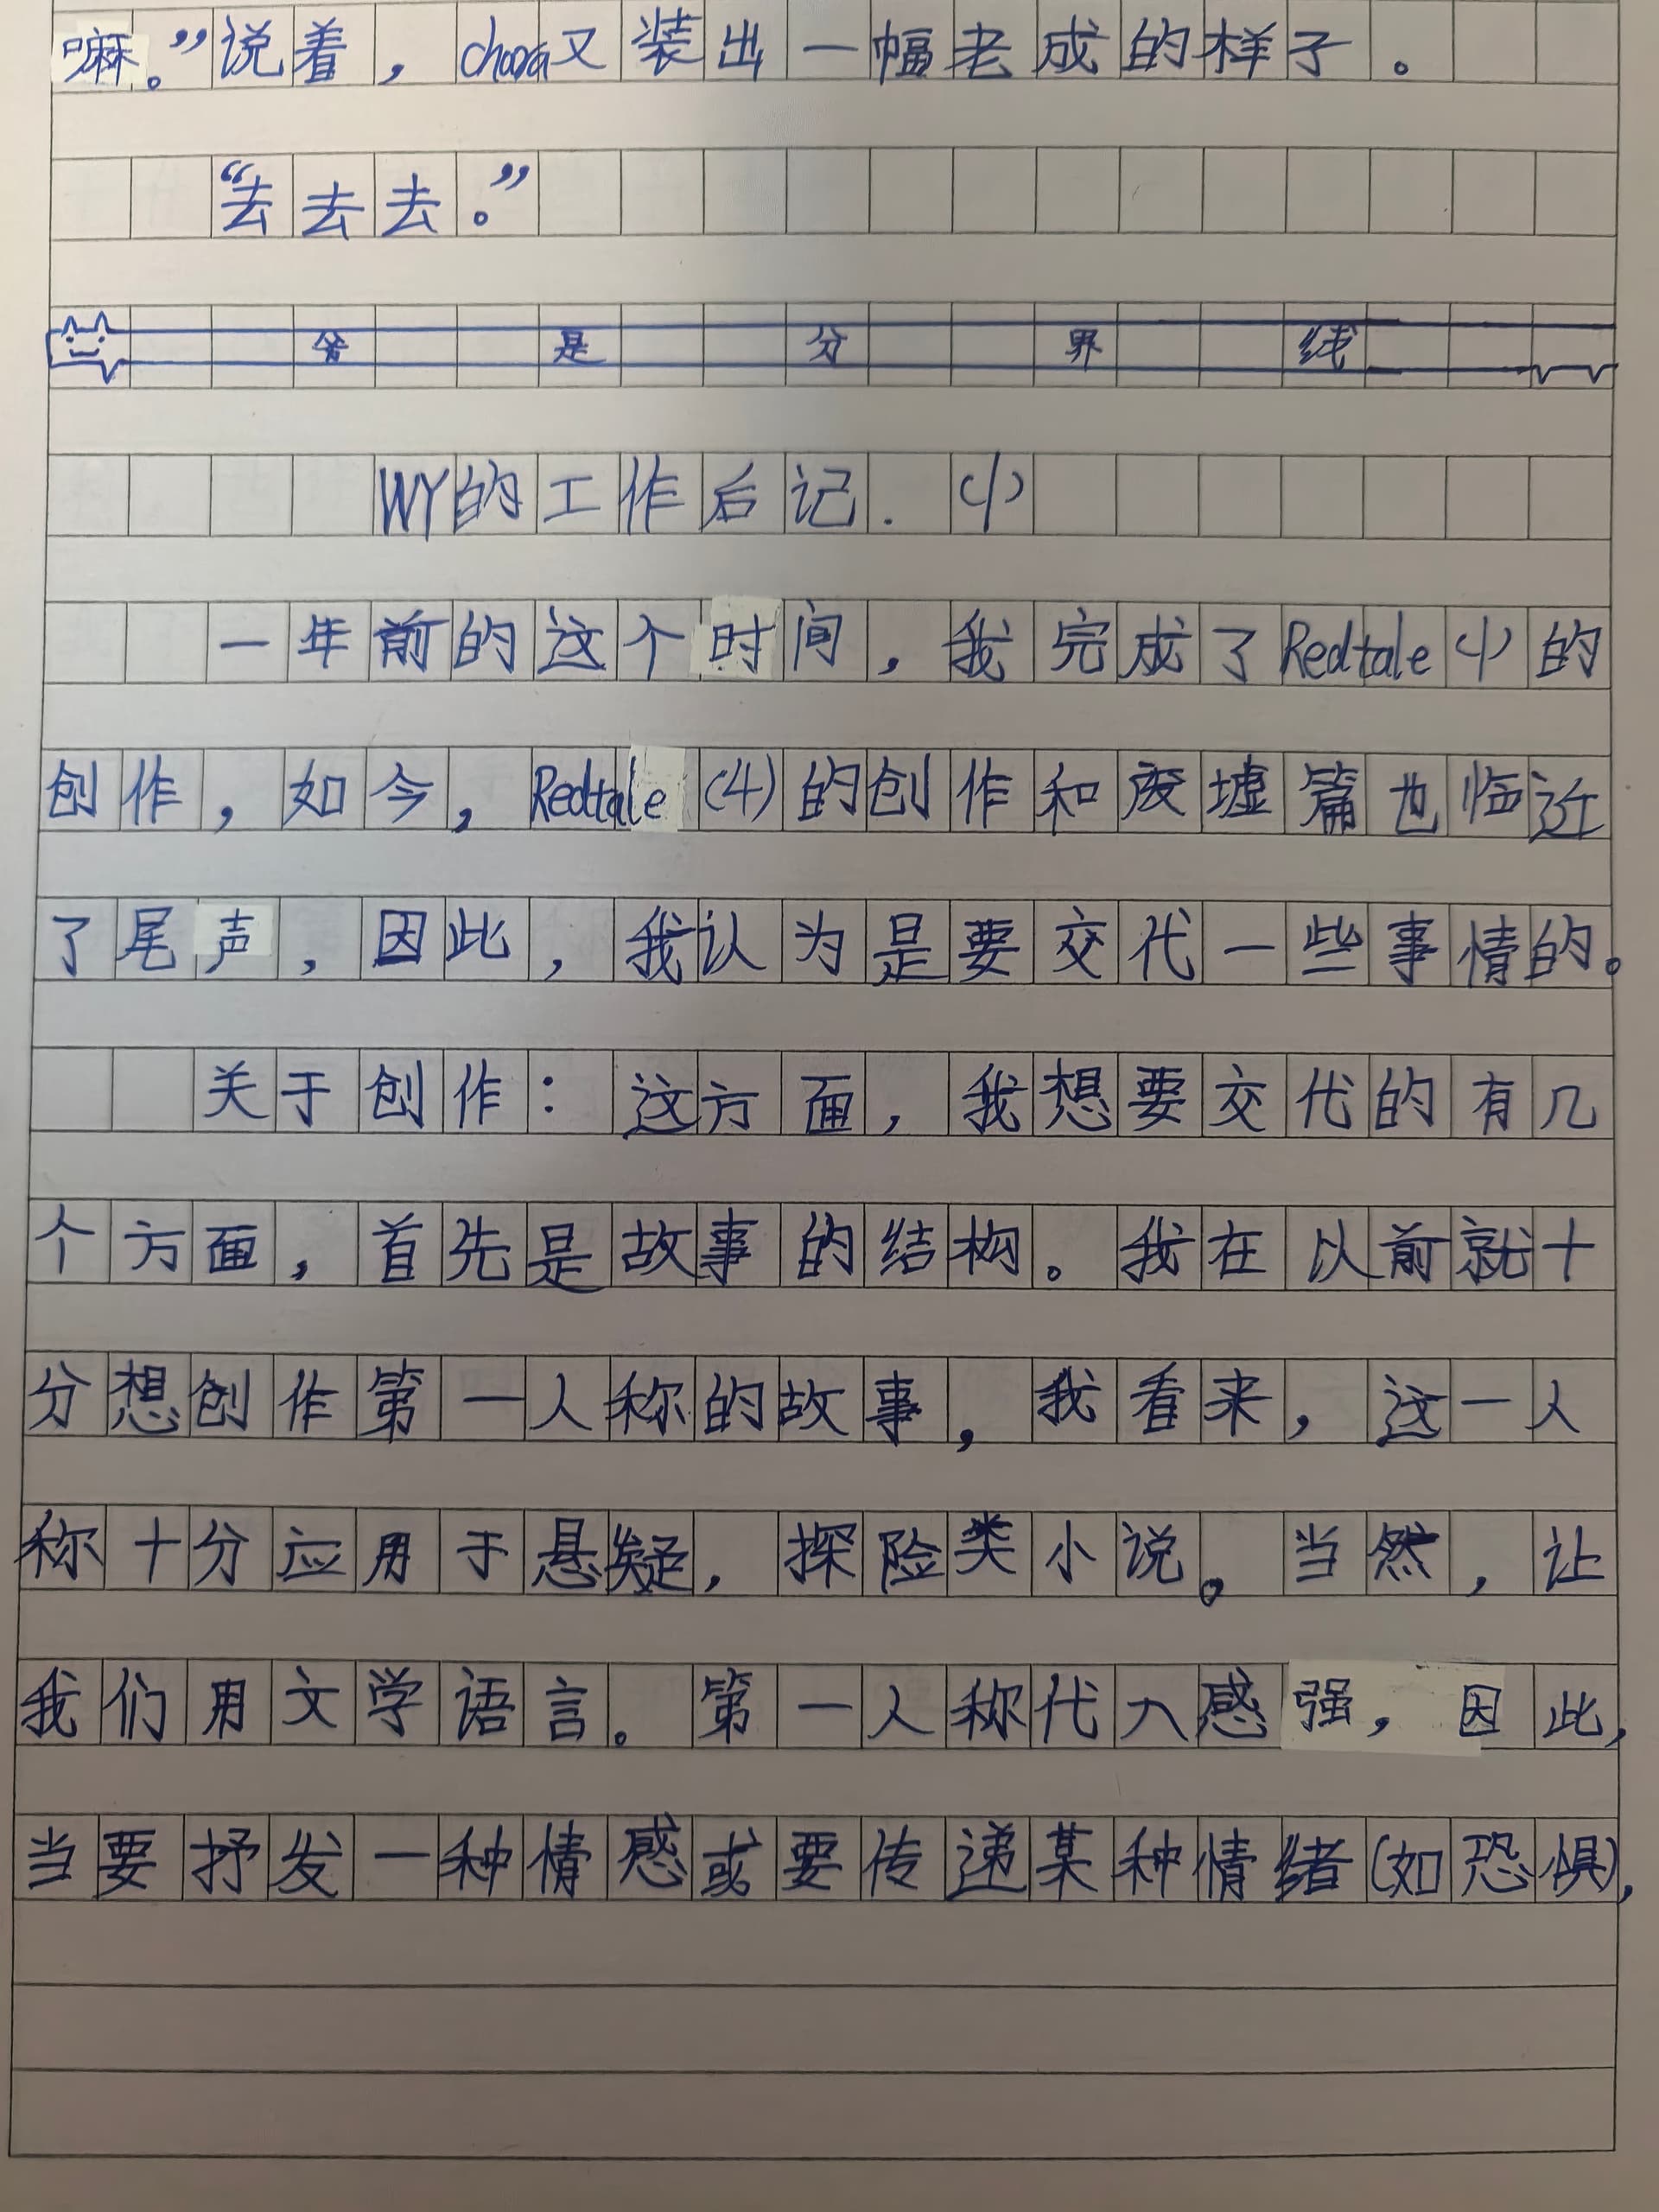 嘛。”说着，chara又装出一幅老成的样子。
“去去去。”
是分界线
WY的工作后记.(1)
一年前的这个时间，我完成了Redtale(1)的
创作，如今，Redtale(4)的创作和废墟篇也临近
了尾声，因此，我认为是要交代一些事情的。
关于创作：这方面，我想要交代的有几
个方面，首先是故事的结构。我在以前就十
分想创作第一人称的故事，我看来，这一人
称十分应用于悬疑，探险类小说。当然，让
我们用文学语言。第一人称代入感强，因此，
当要抒发一种情感或要传递某种情绪(如恐惧)，